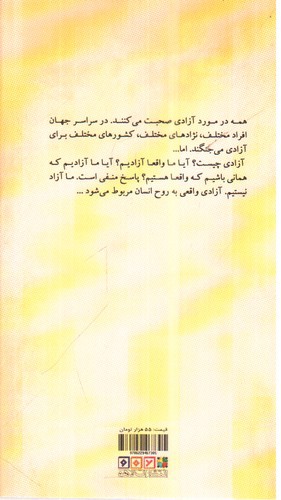 همه در مورد آزادی صحبت می‌کنند. در سراسر جهان
افراد مختلف، نژادهای مختلف، کشورهای مختلف برای
آزادی می‌جنگند. اما...
آزادی چیست؟ آیا ما واقعا آزادیم؟ آیا ما آزادیم که
همانی باشیم که واقعا هستیم؟ پاسخ منفی است. ما آزاد
نیستیم. آزادی واقعی به روح انسان مربوط می‌شود ...
قیمت: ۵۵ هزار تومان